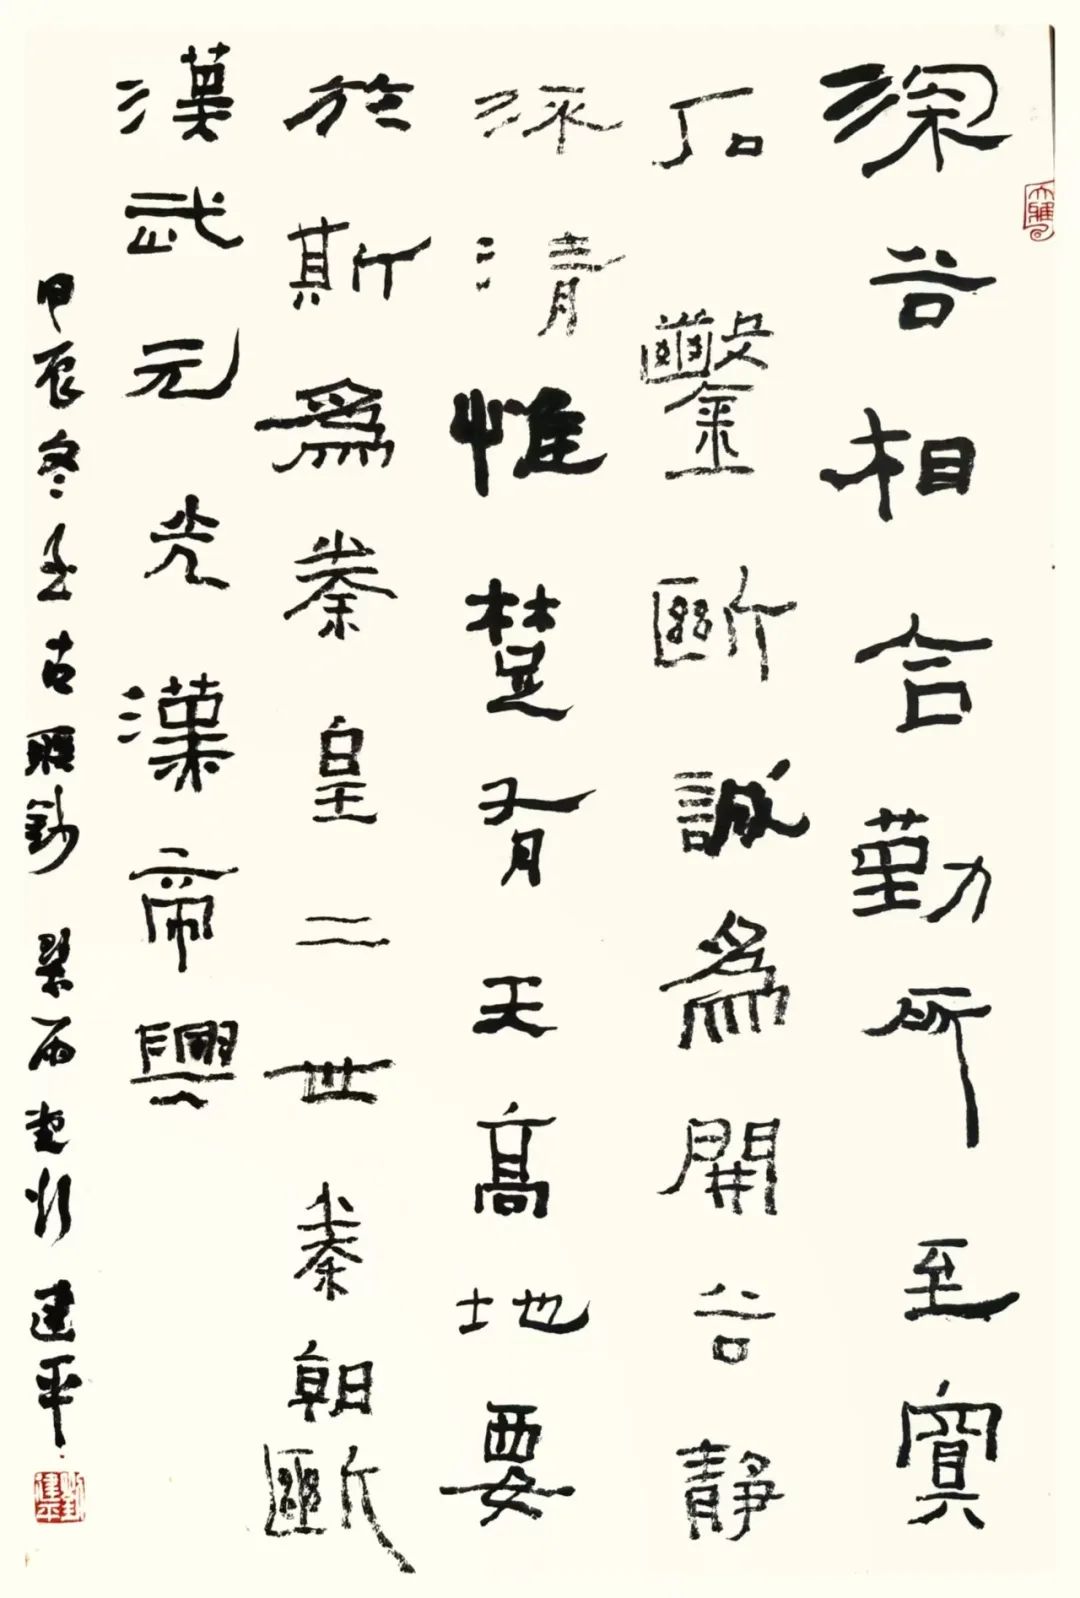 深谷相合勤所至
石鑿斷誠為開谷靜
清惟楚有王高地要
於斯為秦皇二世秦朝斷
漢武元光漢帝興
甲辰冬至古聯鈔 建平